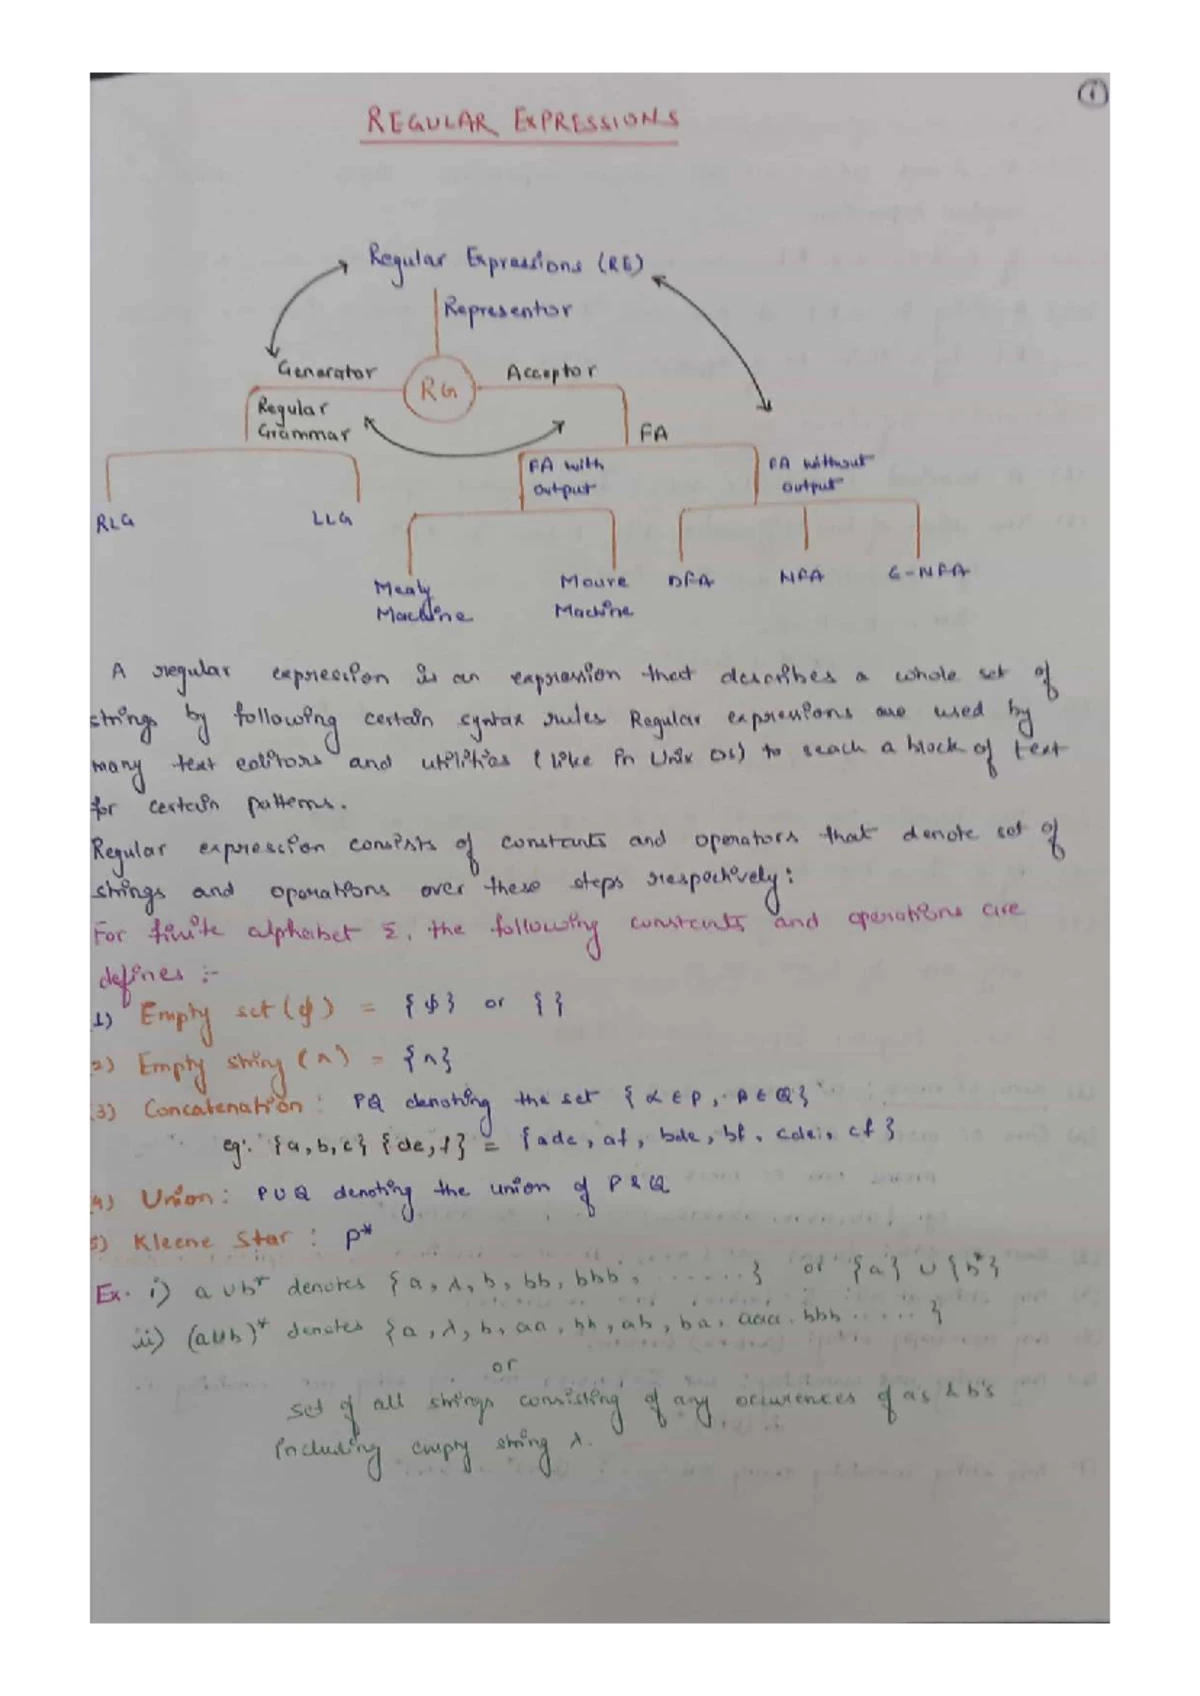 1
REGULAR EXPRESSIONS
Regular Expressions (RE)
Representor
Generator
RG
Acceptor
Regular
Grammar
FA
FA with
output
FA without
output
RLG
LLG
Mealy
Machine
Moure
Machine
DFA
NFA
ε-NFA
A regular expression is an expression that describes a whole set of
strings by following certain syntax rules Regular expressions are used by
many text editors and utilities (like in Unix OS) to seach a block of text
for certain patterns.
Regular expression consists of constants and operators that denote set of
strings and operations over these steps respectively:
For finite alphabet Σ, the following constants and operations are
defines :-
1) Empty set (ϕ) = {ϕ} or { }
2) Empty string (^) = {^}
(3) Concatenation: PQ denoting the set { α ∈ P, β ∈ Q}
eg: {a,b,c} {de,f} = {ade, af, bde, bf, cde, cf}
4) Union: P∪Q denoting the union of P & Q
5) Kleene Star : P*
Ex. i) a ∪ b* denotes {a, λ, b, bb, bbb, ......} or {a} ∪ {b*}
ii) (a∪b)* denotes {a, λ, b, aa, bb, ab, ba, aaa, bbb ..... }
or
set of all strings consisting of any occurences of a's & b's
including empty string λ.